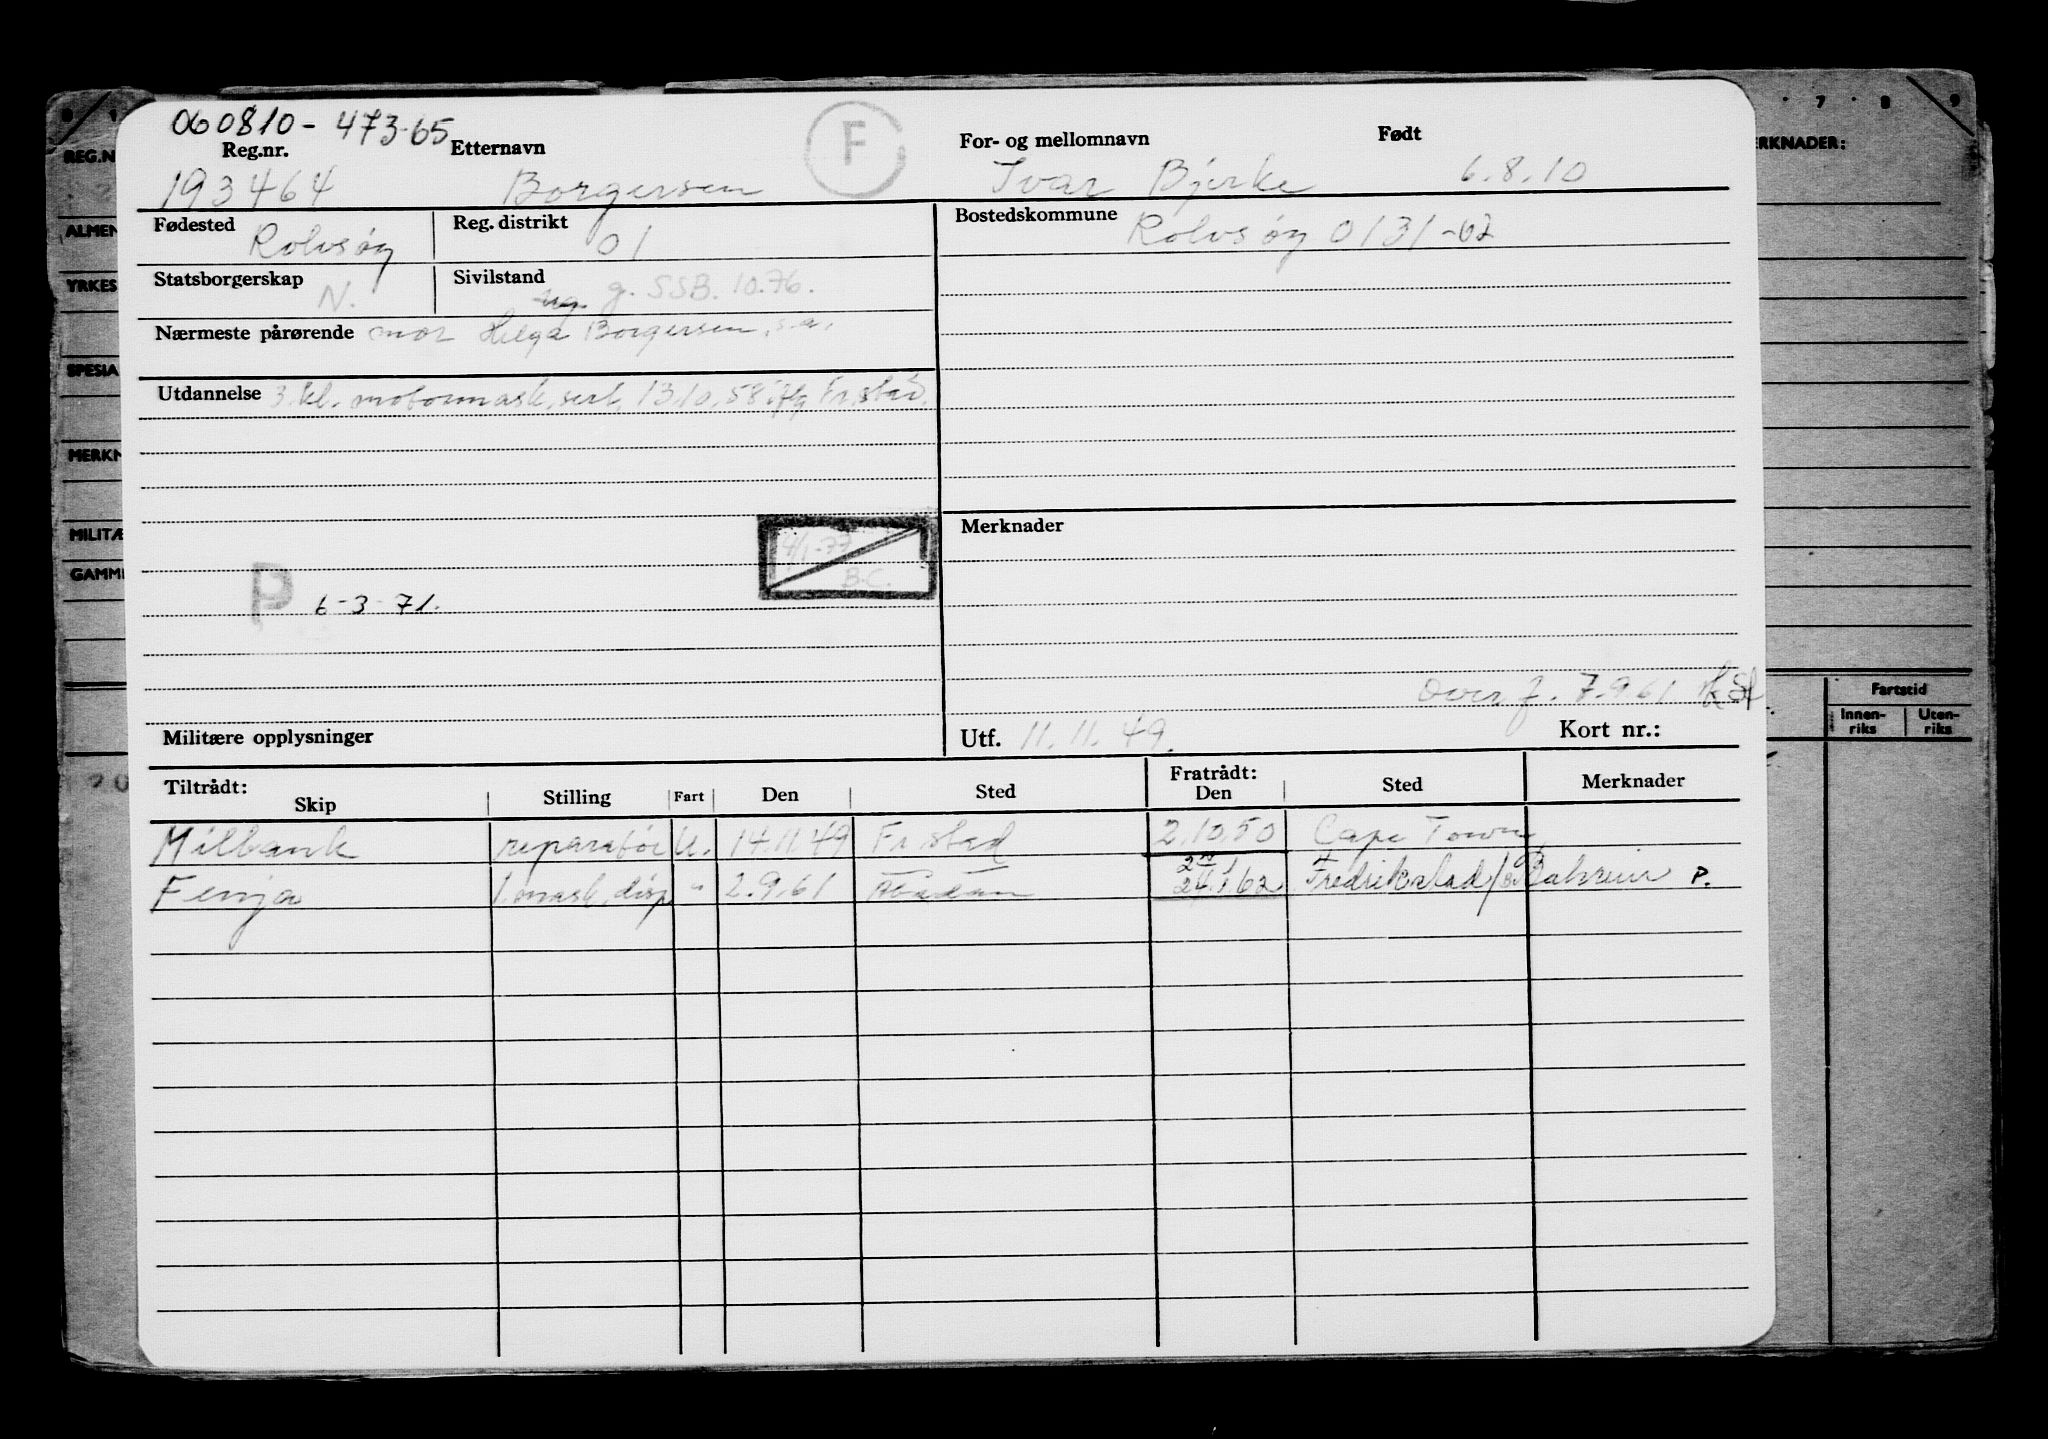 060810-473-65
F
Reg.nr. Etternavn For- og mellomnavn Født
193464 Borgersen Ivar Bjerke 6.8.10
Fødested Rolvsøy Reg. distrikt 01 Bostedskommune Rolvsøy 0131-02
Statsborgerskap N. Sivilstand ug. g. SSB. 10.76.
Nærmeste pårørende mor Helga Borgersen, s.a.
Utdannelse 3. kl. motormask. sert. 13.10.58 Fr.stad.
Merknader
4/1-77
B.C.
P 6-3-71.
Overf. 7.9.61
Militære opplysninger Utf. 11.11.49. Kort nr.:
Tiltrådt: Skip Stilling Fart Den Sted Fratrådt: Den Sted Merknader
Milbank reparatør U. 14.11.49 Fr.stad 2.10.50 Cape Town
Fenja 1. mask. disp " 2.9.61 Abadan 24.1.62 Fredrikstad/Bahrein P.
REG.N
ALMEN
YRKES
SPESIA
MERKN
MILITÆ
GAMM
7 8 9
ERKNADER:
Fartstid
Innen-riks Uten-riks